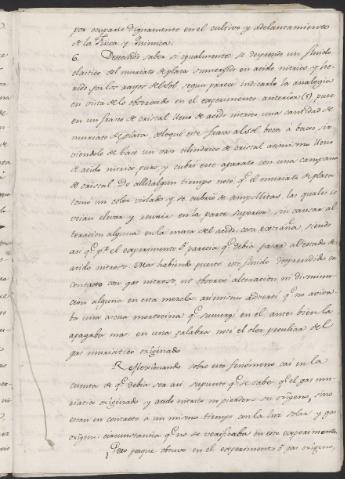 por ocuparse dignamente en el cultivo y adelantamiento
de la Fisica y Quimica.
6. Deseando saber si igualmente se desprende un fluido
elastico del muriato de plata sumergido en acido nitrico y he-
rido por los rayos del Sol segun parece indicarlo la analogia
en vista de lo observado en el experimento anterior (*) puse
en un frasco de cristal lleno de acido nitrico una cantidad de
muriato de plata coloqué este frasco al sol boca á baxo
de base un vaso cilindrico de cristal lleno
de acido nitrico puro y cubrí este aparato con una campana
de cristal. De alli á algun tiempo noté q.e el muriato de plata
tomó un color violado y se cubrió de ampollitas, las quales se
veian elevar y reunir en la parte superior, sin causar al
teracion alguna en la masa del acido
el experimento parecia q.e debia pasar al estado de
acido nitroso. Mas habiendo puesto este fluido desprendido en
contacto con gas nitroso, no observé alteracion ni diminu-
cion alguna en esta mezcla asimismo advertí q.e no aviva-
ba una q.e sumergí en él antes bien la
apagaba mas en una palabra noté el olor peculiar del
gas muriatico oxigenado
Reflexionando sobre este fenómeno caí en la
cuenta de q.e debia ser asi supuesto q.e se sabe q.e el gas mu-
riatico oxigenado y acido nitrico no pierden su oxigeno, sino
estan en contacto a un mismo tiempo con la luz solar y gas
oxigeno: circunstancia q.e no se verificaba en este experimento
porque obtuve en el experimento 5 gas oxigeno,